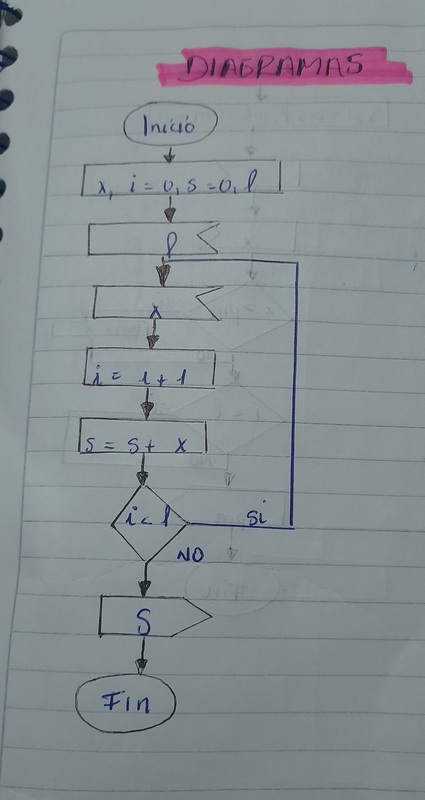 DIAGRAMAS
Inició
x, i = 0, s = 0, l
l
x
i = 1 + 1
s = s + x
i < l
si
NO
S
Fin